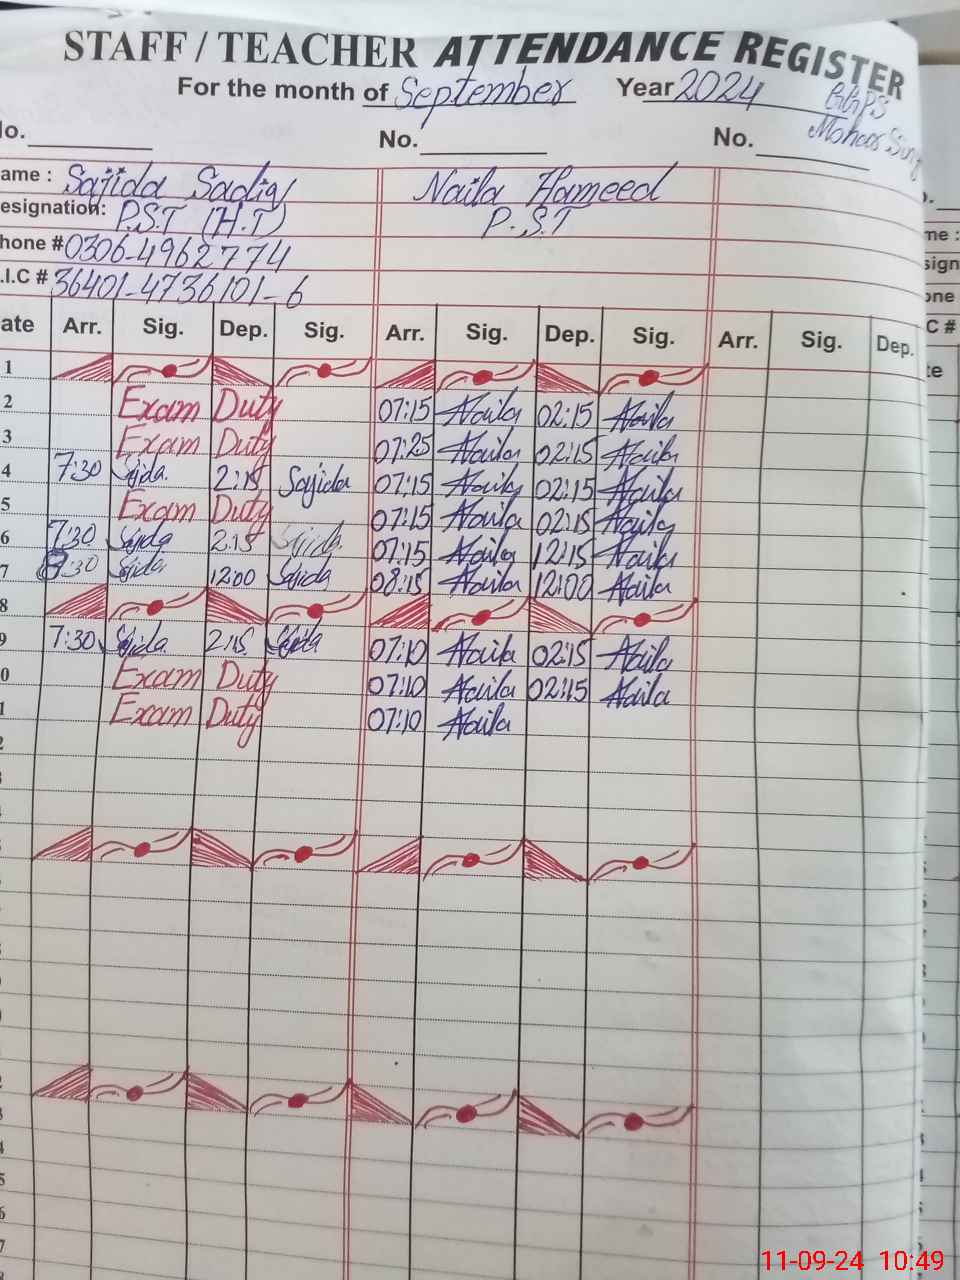 STAFF / TEACHER ATTENDANCE REGISTER
For the month of September Year 2024
GGPS
No. No. No.
ame : Sajida Sadiq Naila Hameed
esignation: P.S.T (H.T) P.S.T
hone # 0306-4962774
.I.C # 36401-4736101-6
ate Arr. Sig. Dep. Sig. Arr. Sig. Dep. Sig. Arr. Sig. Dep.
1
2 Exam Duty 07:15 Naila 02:15 Naila
3 Exam Duty 07:25 Naila 02:15 Naila
4 7:30 Sajida 2:15 Sajida 07:15 Naila 02:15 Naila
5 Exam Duty 07:15 Naila 02:15 Naila
6 7:30 Sajida 2:15 Sajida 07:15 Naila 12:15 Naila
7 8:30 Sajida 12:00 Sajida 08:15 Naila 12:00 Naila
8
9 7:30 Sajida 2:15 Sajida 07:10 Naila 02:15 Naila
0 Exam Duty 07:10 Naila 02:15 Naila
1 Exam Duty 07:10 Naila
2
3
4
5
2
3
4
5
6
7
me :
sign
one
C #
te
11-09-24 10:49